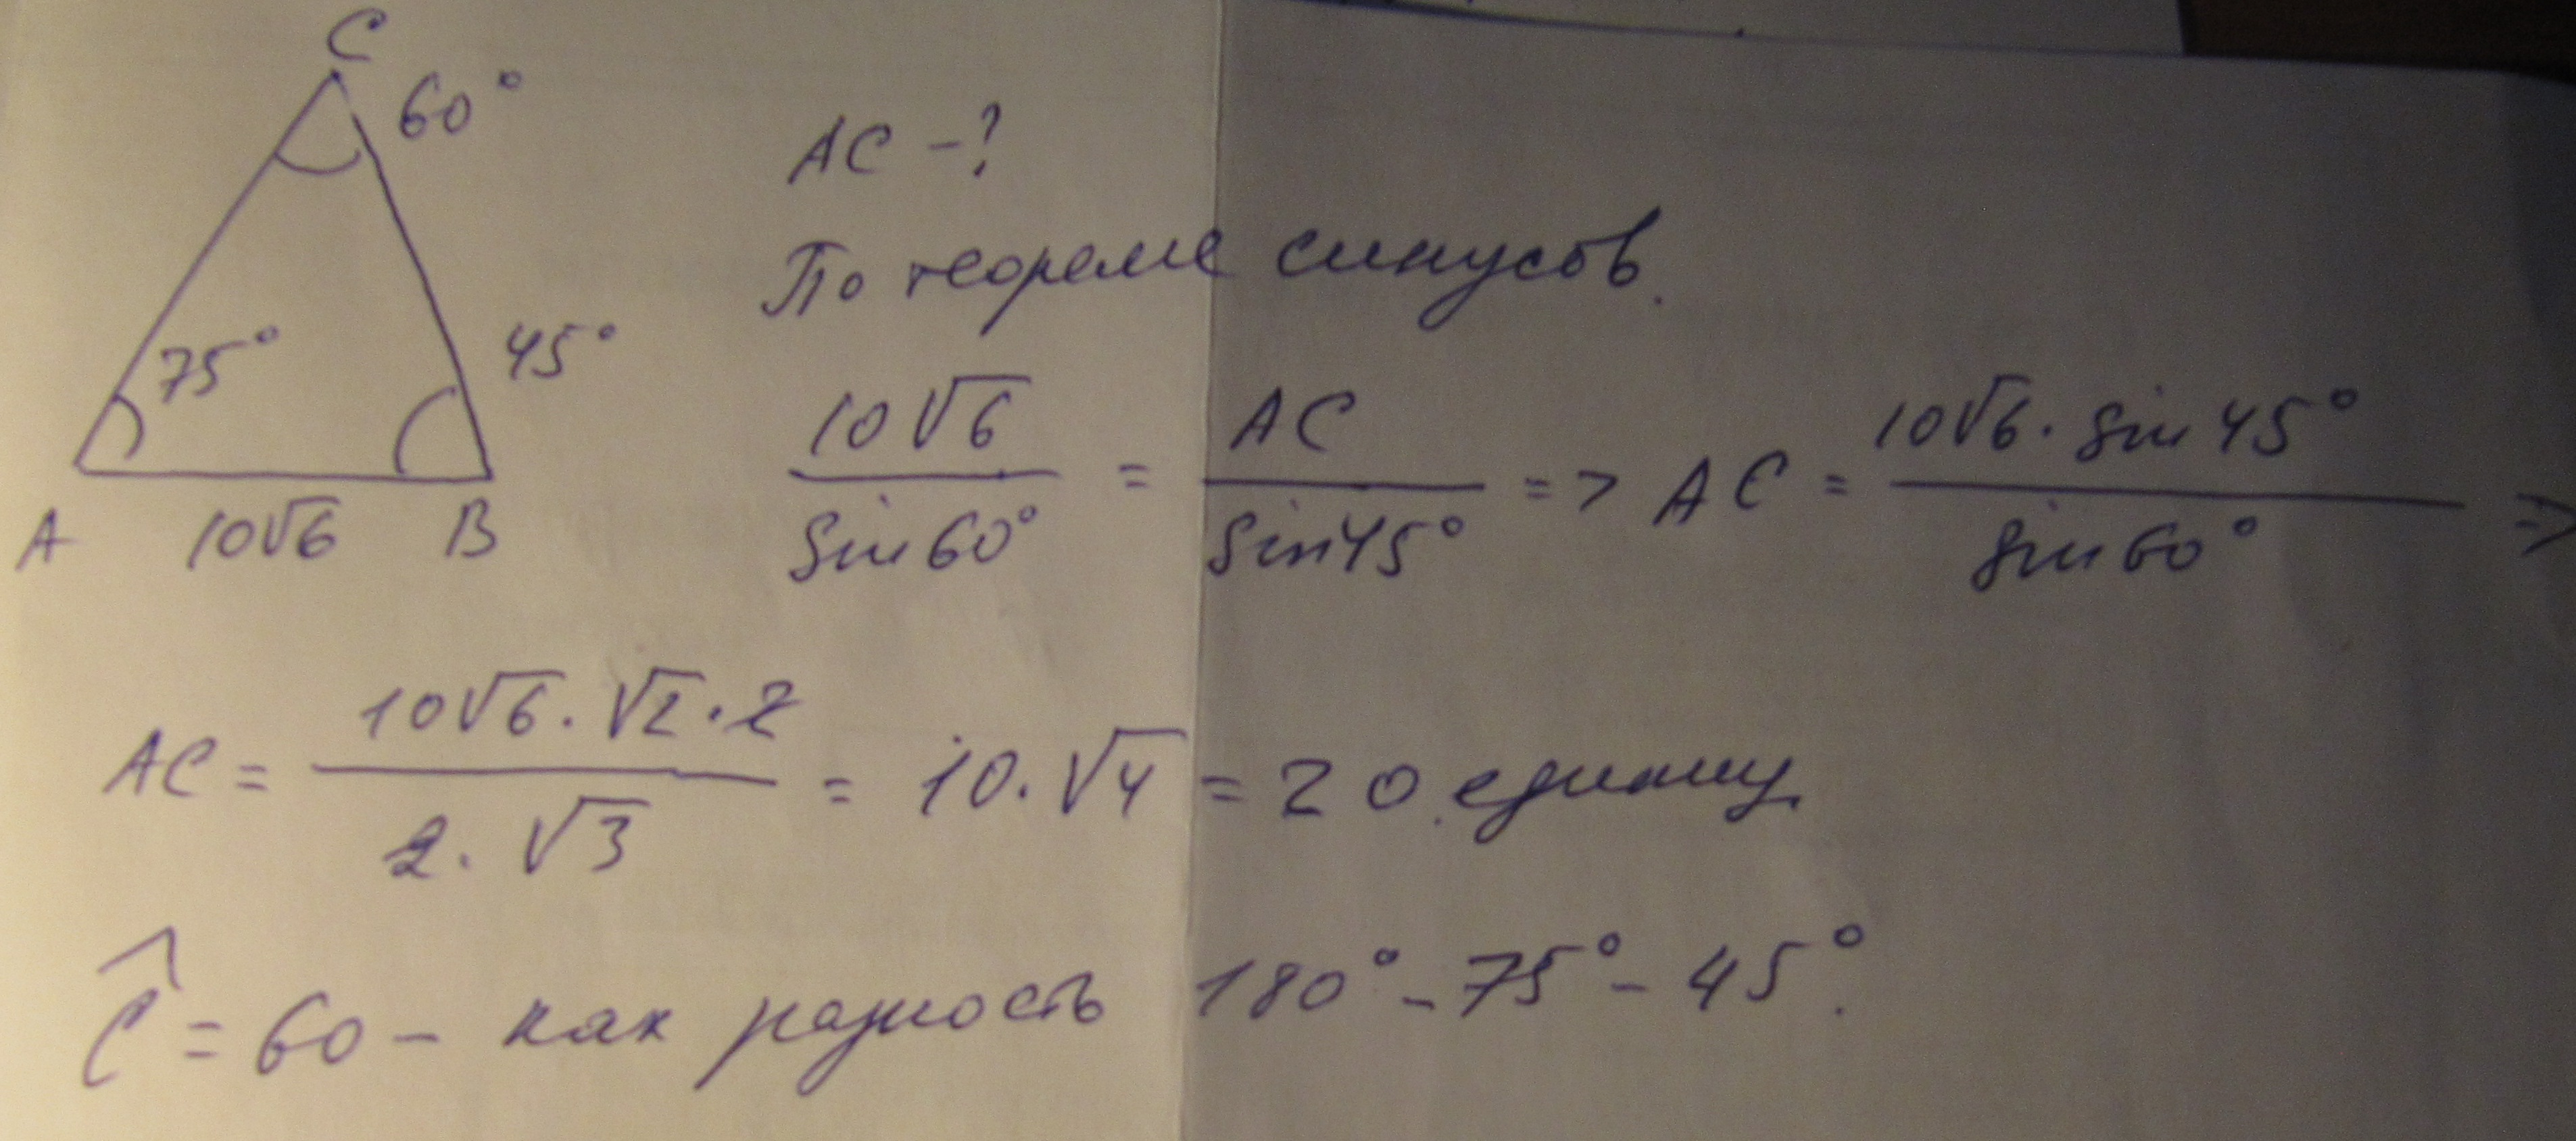 C
60°
AC -?
По теореме синусов.
75°
45°
10√6 / sin60° = AC / sin45° => AC = 10√6 · sin45° / sin60° =>
A 10√6 B
AC = 10√6 · √2 · 2 / 2 · √3 = 10 · √4 = 20 единиц
Ĉ = 60 - как разность 180° - 75° - 45°.